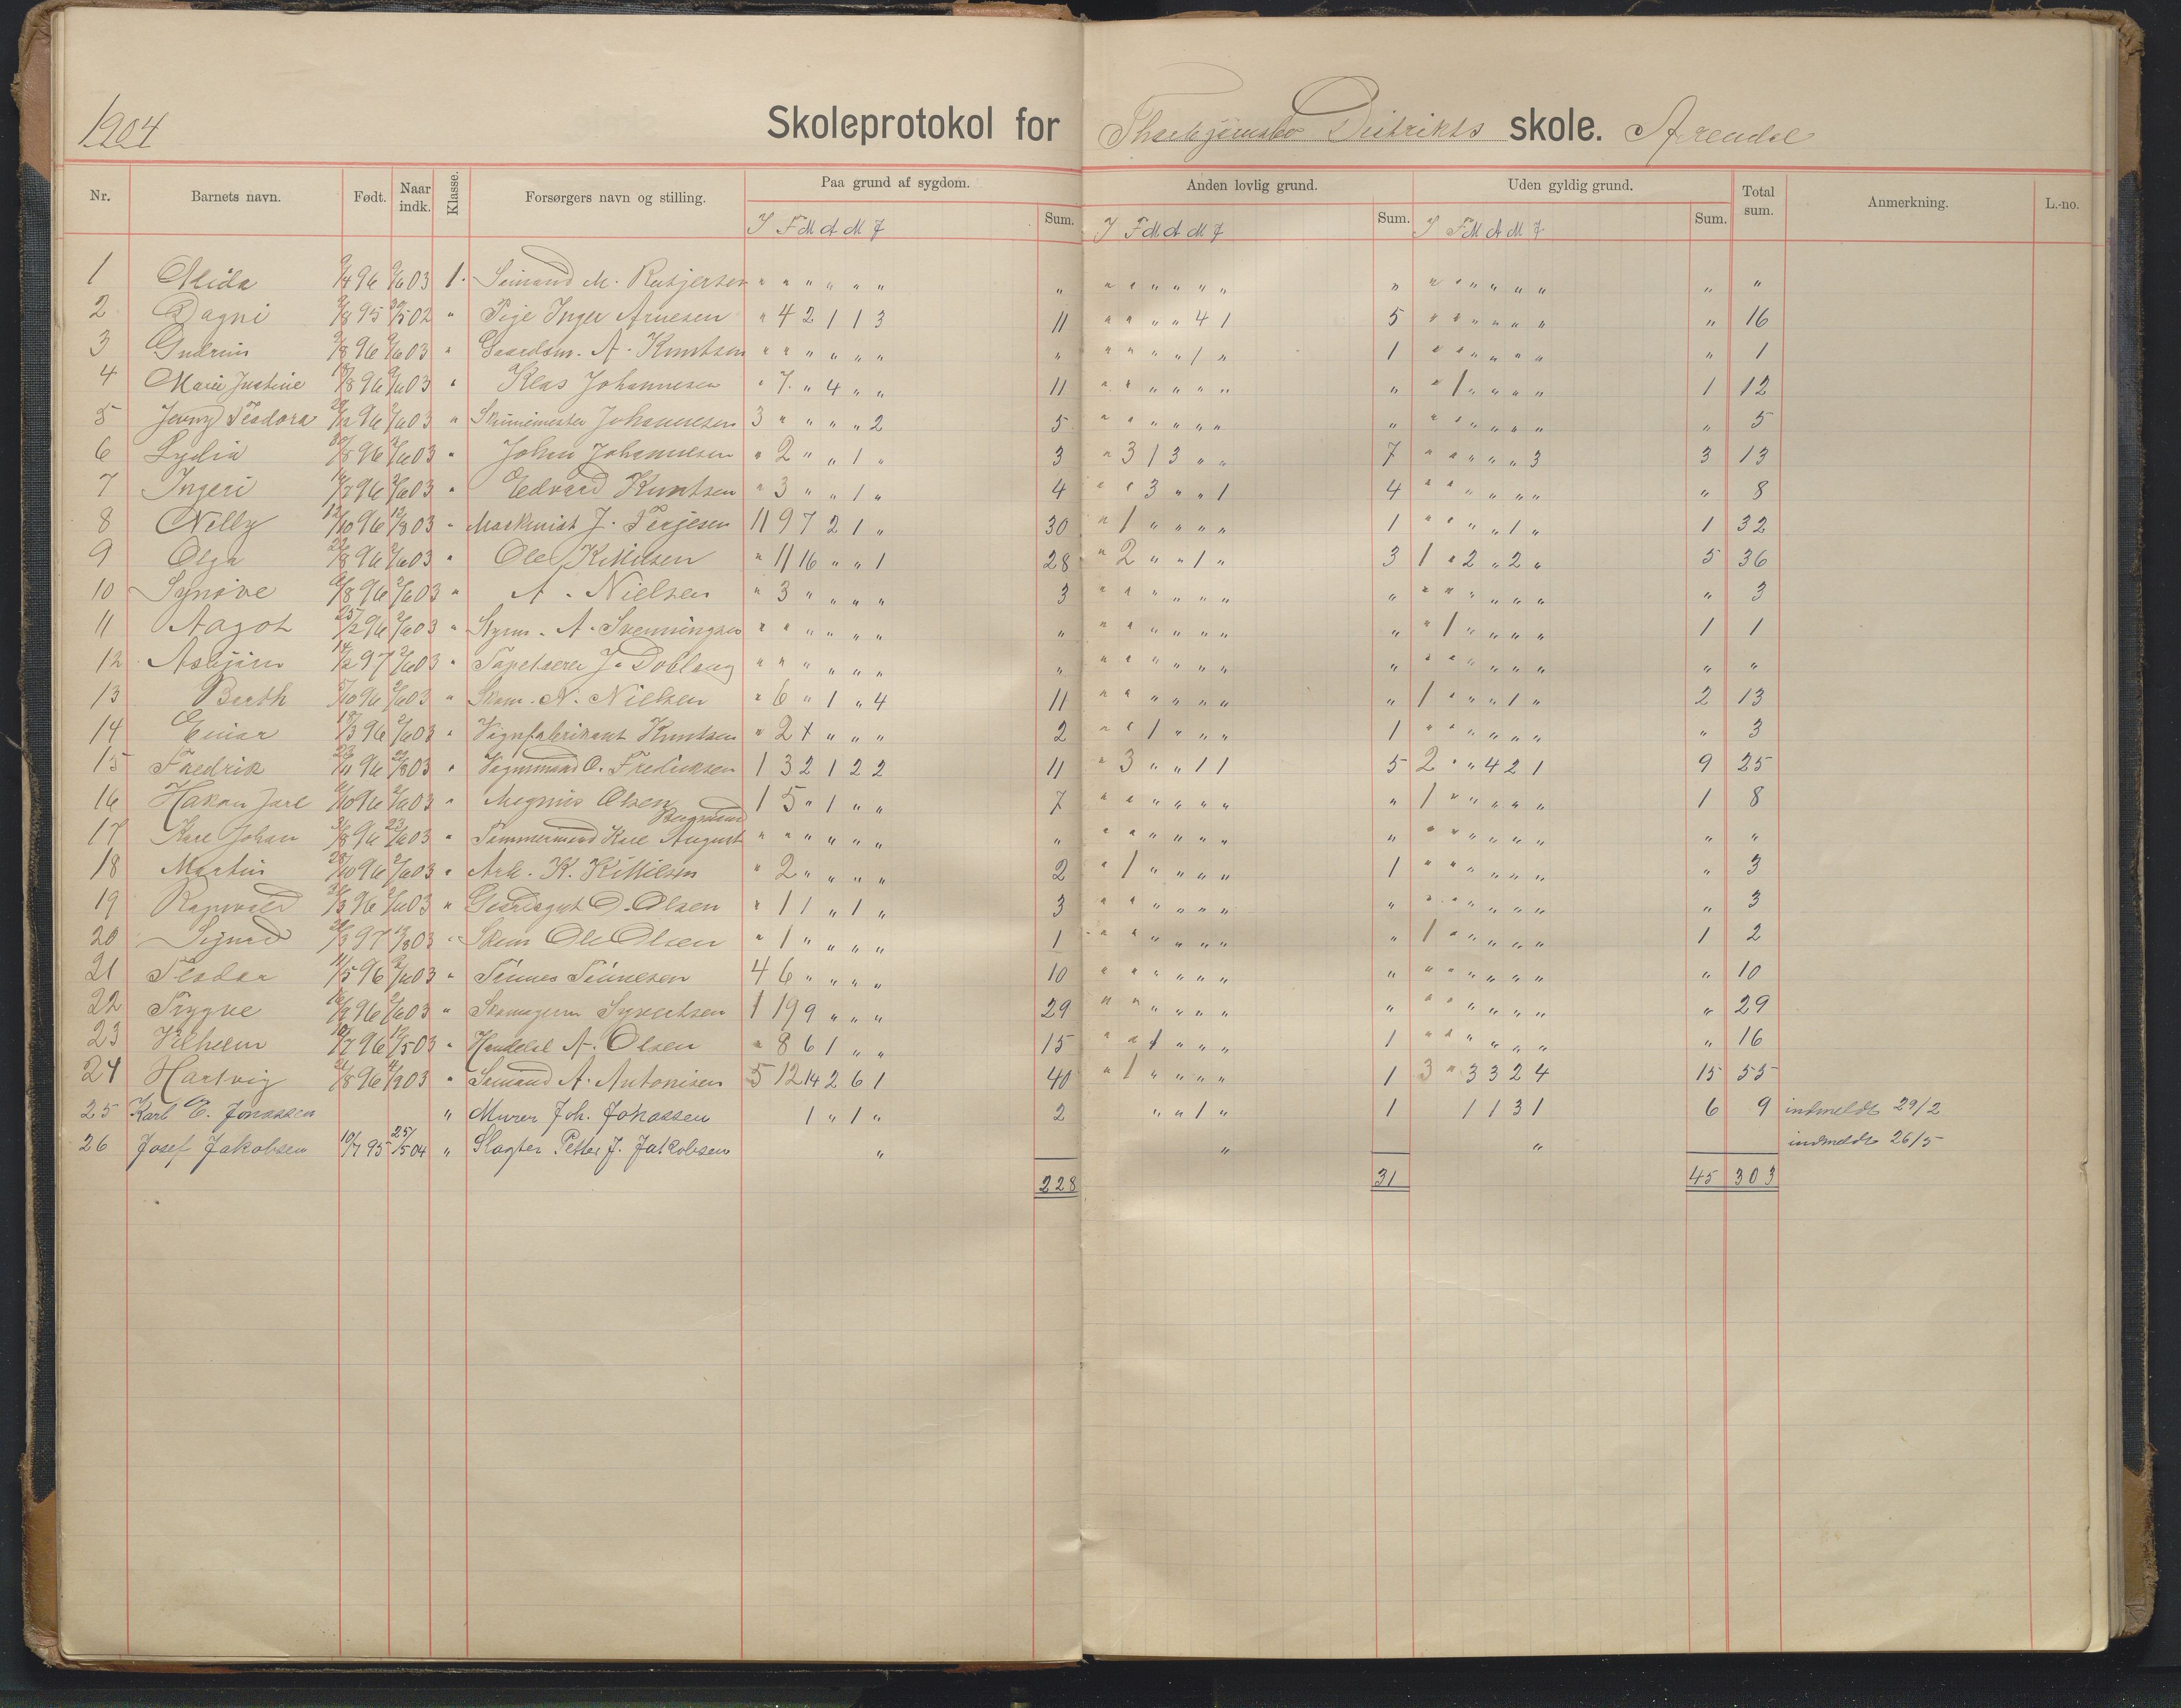 1904 Skoleprotokol for Distrikts skole. Arendal
Nr. Barnets navn. Født. Naar indk. Klasse. Forsørgers navn og stilling. Paa grund af sygdom. Sum. Anden lovlig grund. Sum. Uden gyldig grund. Sum. Total sum. Anmerkning. L.-no.
J F M A M J J F M A M J J F M A M J
1 Alida 9/4 96 2/6 03 1. Sømand M. " " " " " " " " " " " " " " " " " " " " " "
2 Dagni 9/8 95 30/5 02 " Pige Inger Arnesen " 4 2 1 1 3 11 " " " " 4 1 5 " " " " " " " 16
3 Gudrun 2/8 96 2/6 03 " Gaardsm. A. Knutsen " " " " " " " " " " " 1 " 1 " " " " " " " 1
4 Marie Justine 18/8 96 2/6 03 " Klas Johannesen " 7 " 4 " " 11 " " " " " " " " 1 " " " " 1 12
5 Jenny Teodora 29/12 96 2/6 03 " Johannesen 3 " " " " 2 5 " " " " " " " " " " " " " " 5
6 Lydia 30/8 96 2/6 03 " Johan Johannesen " 2 " " 1 " 3 " 3 1 3 " " 7 " " " " " 3 3 13
7 Ingeri 14/7 96 2/6 03 " Edvard Knutsen " 3 " " 1 " 4 " " 3 " " 1 4 " " " " " " " 8
8 Nelly 12/10 96 12/8 03 " Maskinist J. Terjesen 11 9 7 2 1 " 30 " 1 " " " " 1 " " " " 1 " 1 32
9 Olga 22/8 96 2/6 03 " Ole Kittilsen " 11 16 " " 1 28 " 2 " " 1 " 3 1 " 2 " 2 " 5 36
10 Synøve 9/8 96 2/6 03 " A. Nielsen " 3 " " " " 3 " " " " " " " " " " " " " " 3
11 Aagot 25/2 96 2/6 03 " Styrm. A. Svenningsen " " " " " " " " " " " " " " " 1 " " " " 1 1
12 Asbjørn 14/2 97 2/6 03 " Tapetserer J. Doblaug " " " " " " " " " " " " " " " " " " " " " "
13 Barth 5/10 96 2/6 03 " Skom. N. Nielsen " 6 " 1 " 4 11 " " " " " " " 1 " " " 1 " 2 13
14 Einar 18/3 96 2/6 03 " Vognfabrikant Knutsen " 2 " " " 2 " " 1 " " " 1 " " " " " " " 3
15 Fredrik 22/11 96 21/8 03 " Vognmand O. Fredriksen 1 3 2 1 2 2 11 " 3 " " 1 1 5 2 " " 4 2 1 9 25
16 Hakon Jarl 9/10 96 2/6 03 " Magnus Olsen 1 5 " 1 " " 7 " " " " " " " 1 " " " " " 1 8
17 Karl Johan 31/8 96 23/6 03 " Tømmermand Karl August " " " " " " " " " " " " " " " " " " " " " "
18 Martin 28/10 96 2/6 03 " Arb. K. Kittilsen " 2 " " " " 2 " 1 " " " " 1 " " " " " " " 3
19 Ragnvald 31/3 96 2/6 03 " O. Olsen " 1 1 " 1 " 3 " " " " " " " " " " " " " " 3
20 Sigurd 20/3 97 12/8 03 " Skom Ole Olsen " 1 " " " " 1 " " " " " " " 1 " " " " " 1 2
21 Teodor 11/5 96 2/6 03 " Tønnes Tønnesen 4 6 " " " " 10 " " " " " " " " " " " " " " 10
22 Trygve 16/9 96 2/6 03 " Syvertsen 1 19 9 " " " 29 " " " " " " " " " " " " " " 29
23 Vilhelm 10/7 96 19/5 03 " Handelsb A. Olsen " 8 6 1 " " 15 " " 1 " " " 1 " " " " " " " 16
24 Hartvig 21/8 96 4/9 03 " Sømand A. Antonisen 5 12 14 2 6 1 40 " 1 " " " " 1 3 " 3 3 2 4 15 55
25 Karl E. Jonassen " Murer Joh. Jonassen 1 " 1 " 2 " " 1 " 1 1 1 3 1 6 9 indmeldt 29/2
26 Josef Jakobsen 10/7 95 25/5 04 " Slagter Petter J. Jakobsen " " " indmeldt 26/5
228 31 45 303